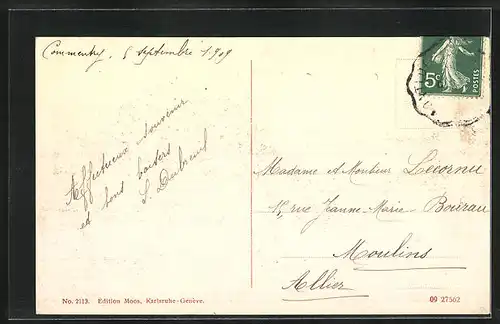 Commentry, 5 septembre 1909
Affectueux souvenir
et bons baisers
S. Dubreuil
Madame et Monsieur Lecornu
15, rue Jeanne-Marie
Moulins
Allier
5c
POSTES
No. 2113. Edition Moos, Karlsruhe-Genève.
09 27502